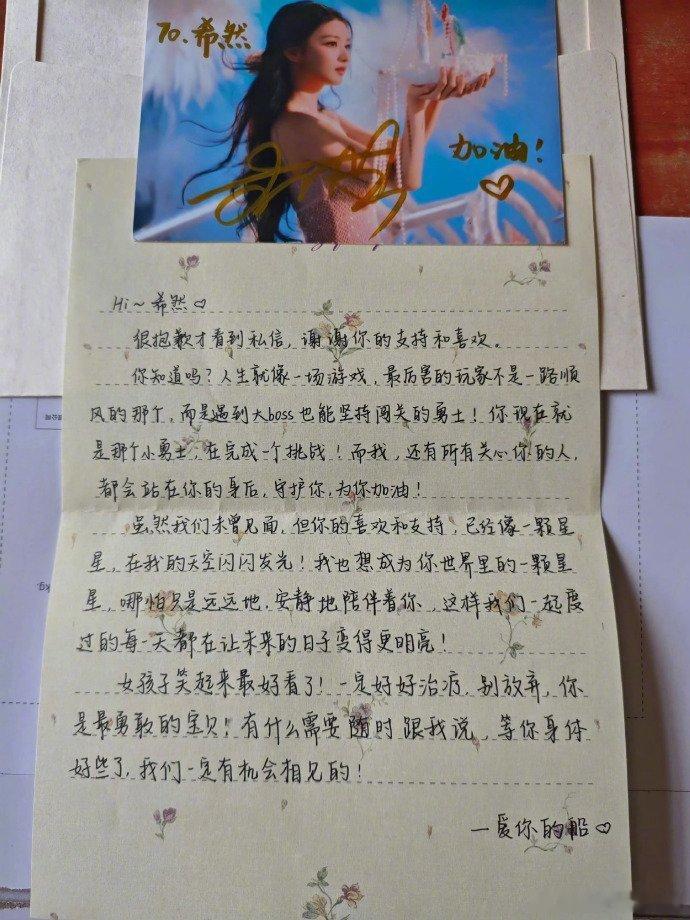 To.希然
加油！♡
Hi～希然♡
很抱歉才看到私信，谢谢你的支持和喜欢。
你知道吗？人生就像一场游戏，最厉害的玩家不是一路顺
风的那个，而是遇到大boss也能坚持闯关的勇士！你现在就
是那个小勇士，在完成一个挑战！而我，还有所有关心你的人，
都会站在你的身后，守护你，为你加油！
虽然我们未曾见面，但你的喜欢和支持，已经像一颗星
星，在我的天空闪闪发光！我也想成为你世界里的一颗星
星，哪怕只是远远地，安静地陪伴着你，这样我们一起度
过的每一天都在让未来的日子变得更明亮！
女孩子笑起来最好看了！一定好好治疗，别放弃，你
是最勇敢的宝贝！有什么需要随时跟我说，等你身体
好些了，我们一定有机会相见的！
—爱你的船♡